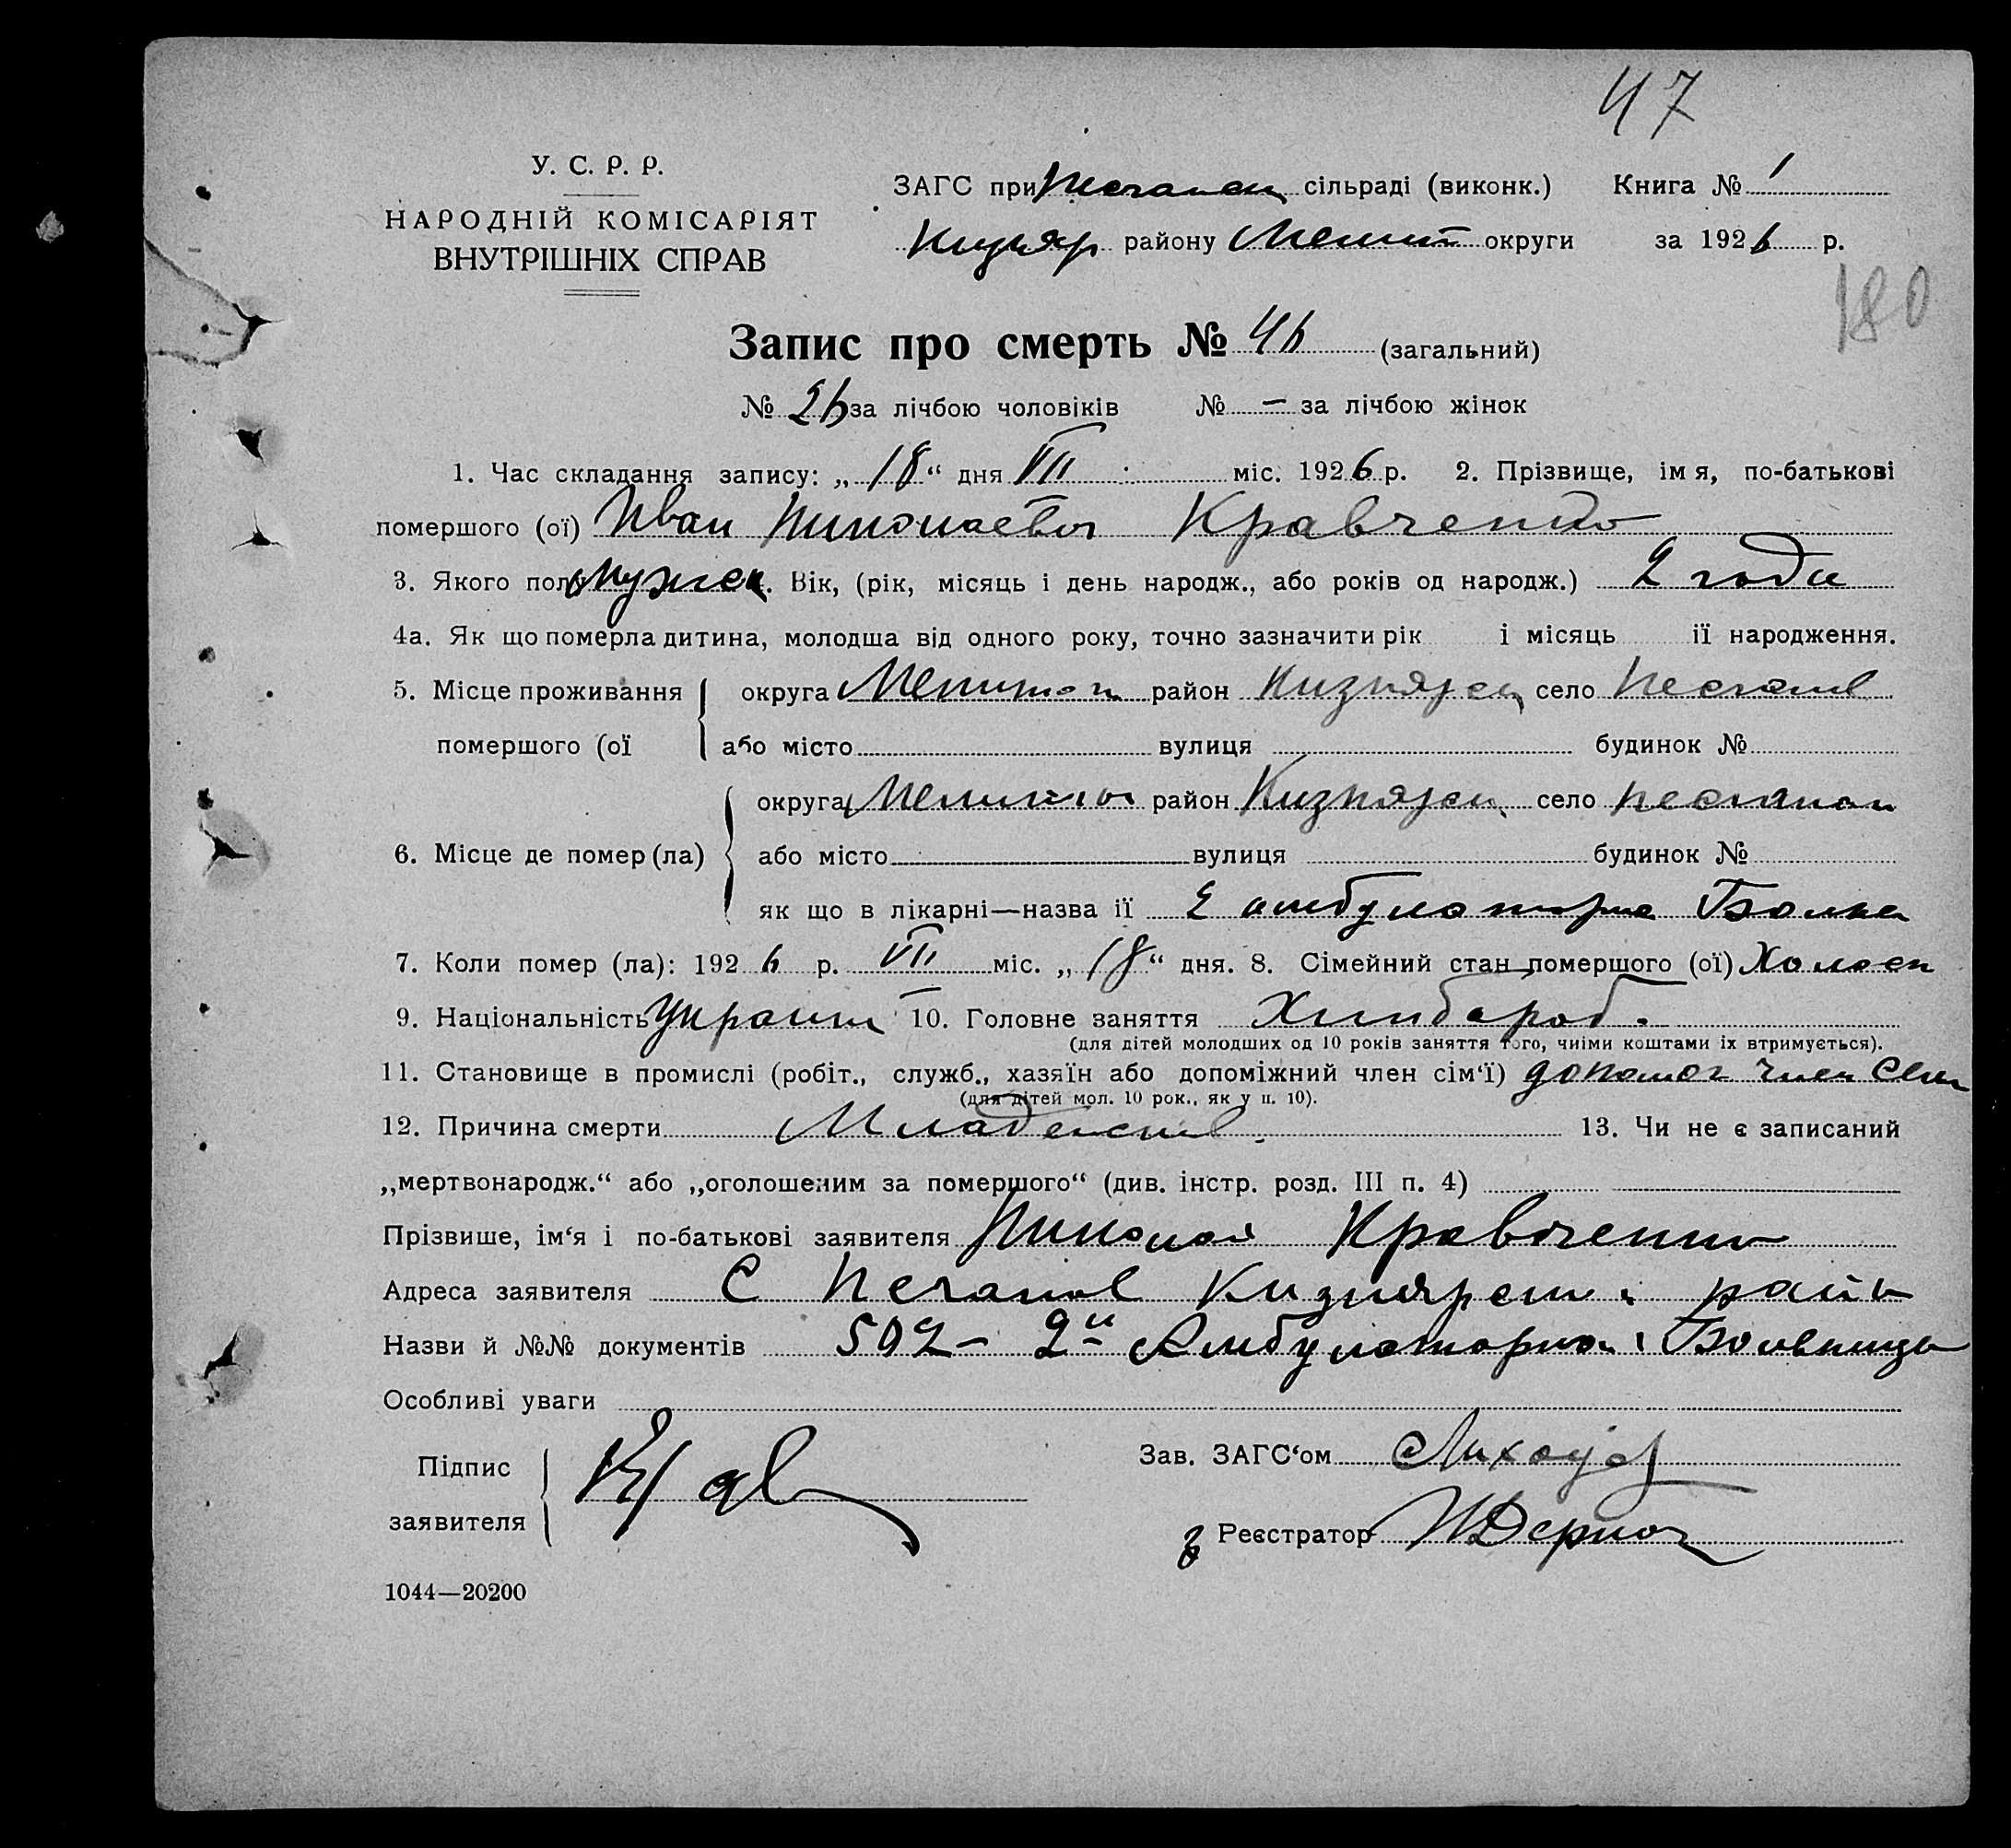 47
У. С. Р. Р.
НАРОДНІЙ КОМІСАРІЯТ
ВНУТРІШНІХ СПРАВ
ЗАГС при сільраді (виконк.) Книга № 1
району Мелит округи за 1926 р.
180
Запис про смерть № 46 (загальний)
№ 26 за лічбою чоловіків № — за лічбою жінок
1. Час складання запису: „18“ дня VII міс. 1926 р. 2. Прізвище, імя, по-батькові
помершого (ої) Иван Николаевич Кравченко
3. Якого полу мужск. Вік, (рік, місяць і день народж., або років од народж.) 2 года
4а. Як що померла дитина, молодша від одного року, точно зазначити рік і місяць її народження.
5. Місце проживання округа Мелитоп район Кизиярск село
помершого (ої або місто вулиця будинок №
округа Мелитоп район Кизиярск село
6. Місце де помер (ла) або місто вулиця будинок №
як що в лікарні—назва її 2 амбулаторна Больн
7. Коли помер (ла): 1926 р. VII міс. „18“ дня. 8. Сімейний стан помершого (ої) Холост
9. Національність Украин 10. Головне заняття Хлибороб.
(для дітей молодших од 10 років заняття того, чиїми коштами їх втримується).
11. Становище в промислі (робіт., служб., хазяїн або допоміжний член сім‘ї) допомог член Семи
(для дітей мол. 10 рок., як у п. 10).
12. Причина смерти Младенский. 13. Чи не є записаний
„мертвонародж.“ або „оголошеним за помершого“ (див. інстр. розд. III п. 4)
Прізвише, ім‘я і по-батькові заявителя Николай Кравченко
Адреса заявителя С Кизиярск. район
Назви й №№ документів 592 — 2й Амбулаторна. Больница
Особливі уваги
Підпис Крав
заявителя
Зав. ЗАГС‘ом
Реєстратор
1044—20200